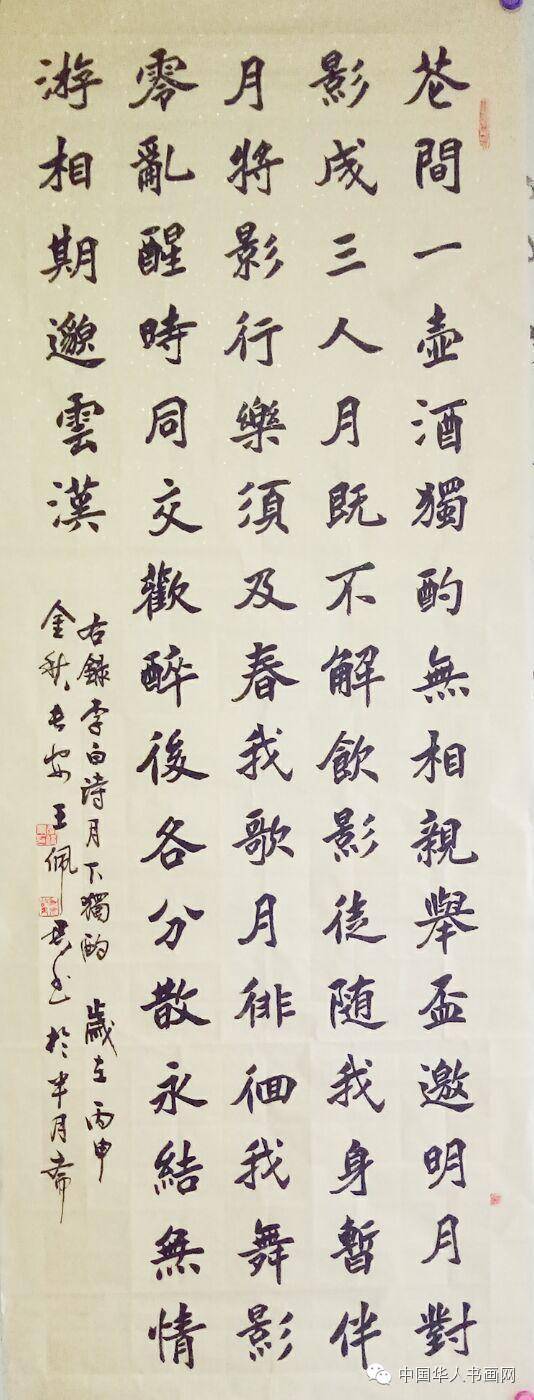 花間一壺酒獨酌無相親舉盃邀明月對
影成三人月既不解飲影徒随我身暫伴
月将影行樂須及春我歌月徘徊我舞影
零亂醒時同交歡醉後各分散永結無情
游相期邈雲漢
右錄李白詩月下獨酌 歲在丙申
金秋長安王佩 书於半月齋
中国华人书画网